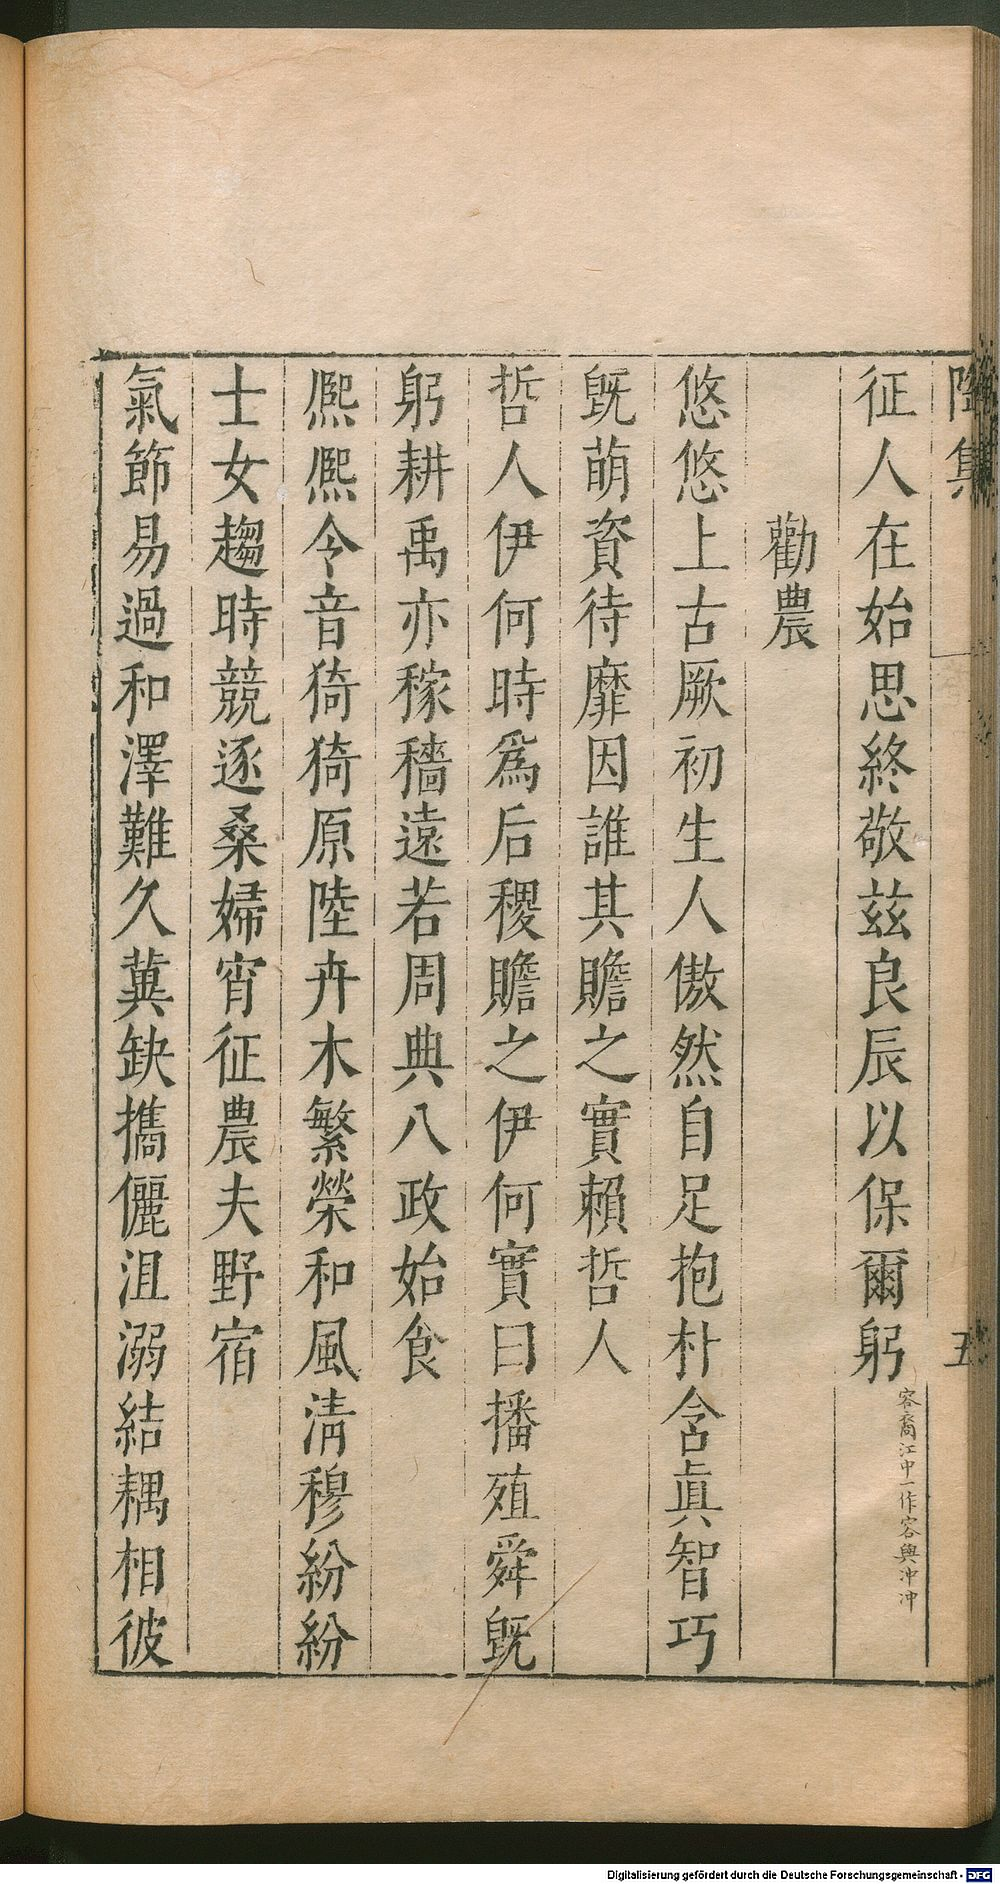 陶集 五
征人在始思終敬茲良辰以保爾躬
容裔江中一作容與沖沖
勸農
悠悠上古厥初生人傲然自足抱朴含眞智巧
旣萌資待靡因誰其贍之實賴哲人
哲人伊何時爲后稷贍之伊何實曰播殖舜旣
躬耕禹亦稼穡遠若周典八政始食
熈熈令音猗猗原陸卉木繁榮和風清穆紛紛
士女趨時競逐桑婦宵征農夫野宿
氣節易過和澤難久冀缺攜儷沮溺結耦相彼
Digitalisierung gefördert durch die Deutsche Forschungsgemeinschaft - DFG